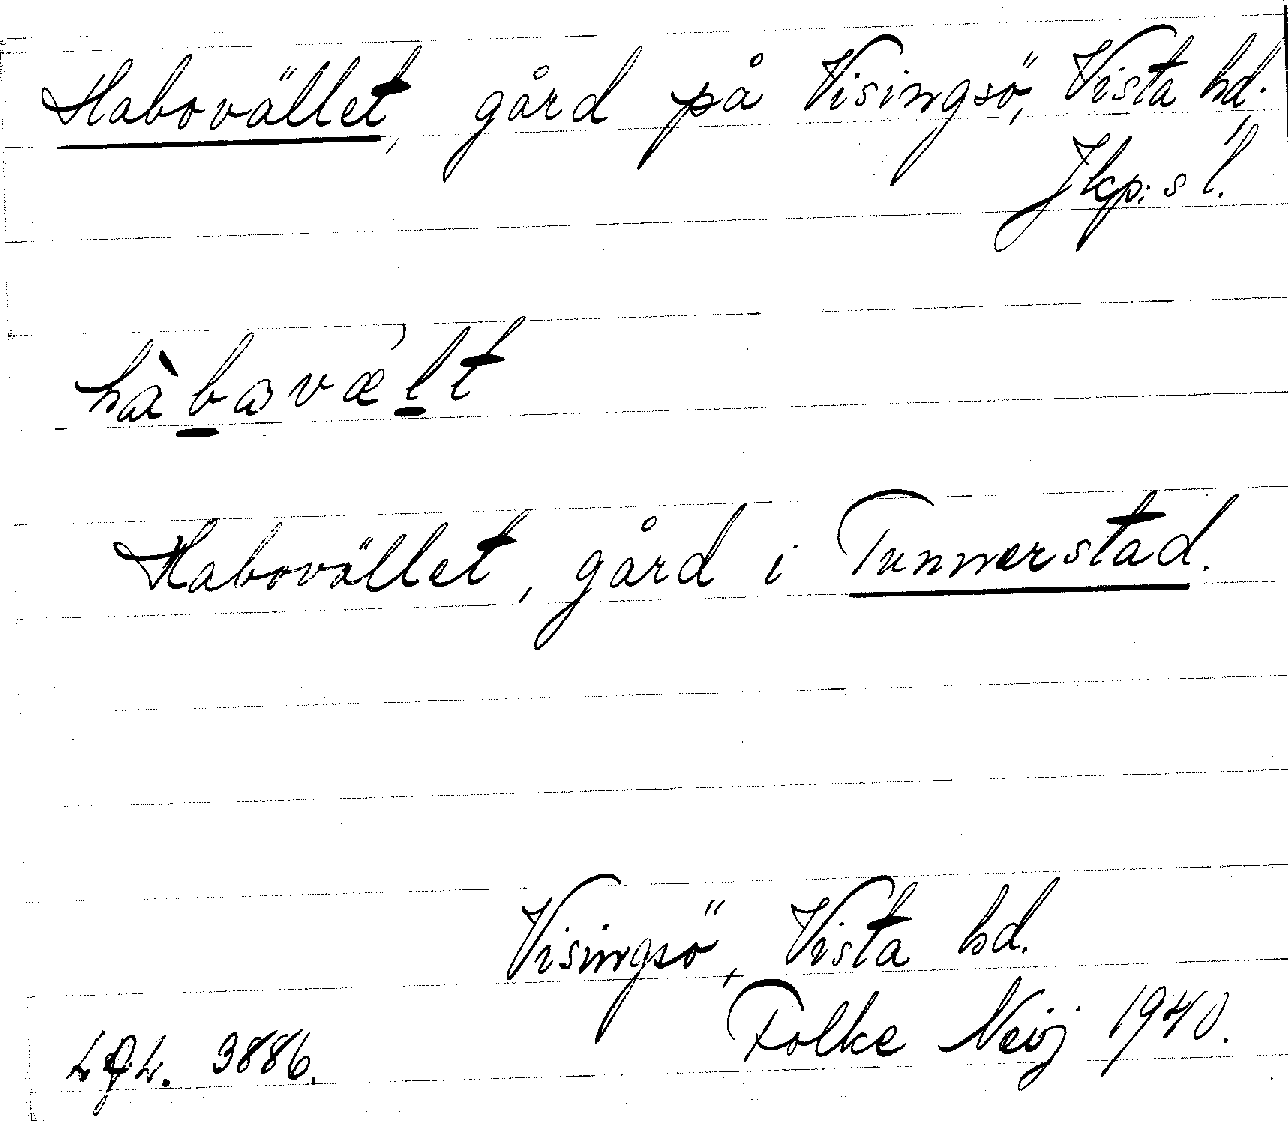 Habovället, gård på Visingsö, Vista hd.
Jkp:s l.
hàbavælt
Habovället, gård i Tunnerstad.
Visingsö, Vista hd.
Folke Neij 1940.
3886.